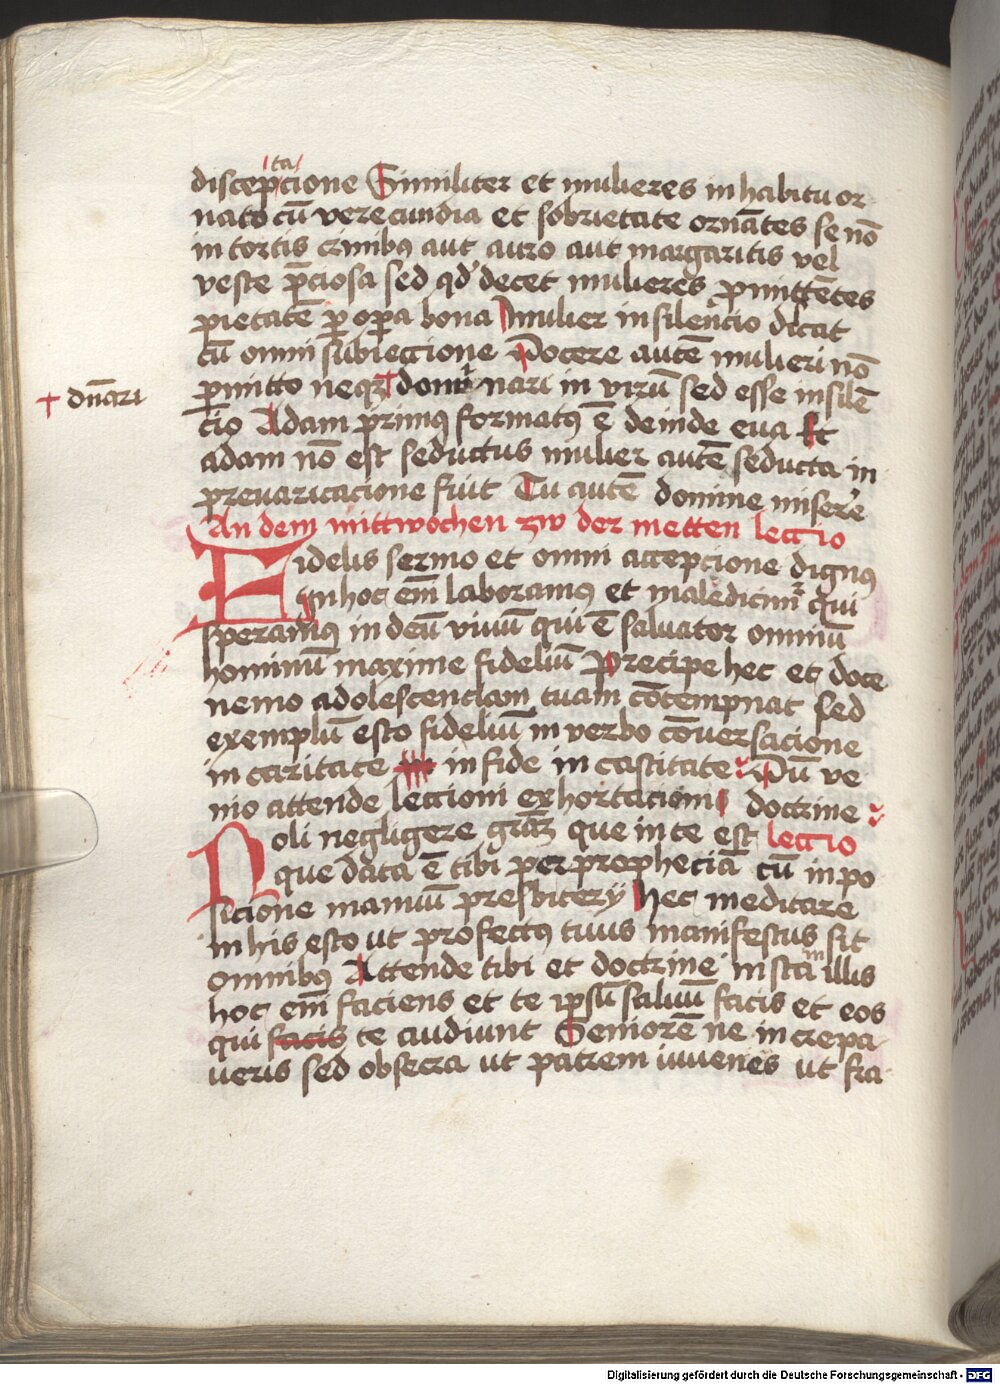 ta
discepcione Similiter et mulieres in habitu or
nato cū verecundia et sobrietate ornātes se nō
in tortis crinibꝯ aut auro aut margaritis vel
veste p̄ciosa sed qd' decet mulieres ꝓmittētes
pietatē ꝑ opa bona mulier in silencio dicat
cū omni subieccione Docere autē mulieri nō
ꝑmitto neqꝫ † domi nari in virū sed esse in silē
† dn̄ari
cio Adam primꝯ formatꝯ ē deinde eua Et
adam nō est seductus mulier autē seducta in
preuaricacione fuit Tu autē domine misere
An dem mittwochen zw der metten leccio
Fidelis sermo et omni accepcione dignꝯ
in hoc em̄ laboramꝯ et maledicimr qui
speramꝯ in deū viuū qui ē saluator omniū
hominū maxime fideliū Precipe hec et doce
nemo adolescenciam tuam cōtempnat sed
exemplū esto fideliū in verbo cōuersacione
in caritate in fide in castitate Dū ve
nio attende leccioni exhortacioni doctrine
Noli negligere grāꝫ que in te est leccio
que data ē tibi per propheciā cū inpo
sicione manuū presbiterÿ Hec meditare
in his esto ut profectꝯ tuus manifestus sit
omnibꝯ Attende tibi et doctrine insta in illis
hoc em̄ faciens et te ipsū saluū facis et eos
qui facis te audiunt Seniorē ne increpa
ueris sed obsecra ut patrem iuuenes ut fra
Digitalisierung gefördert durch die Deutsche Forschungsgemeinschaft - DFG